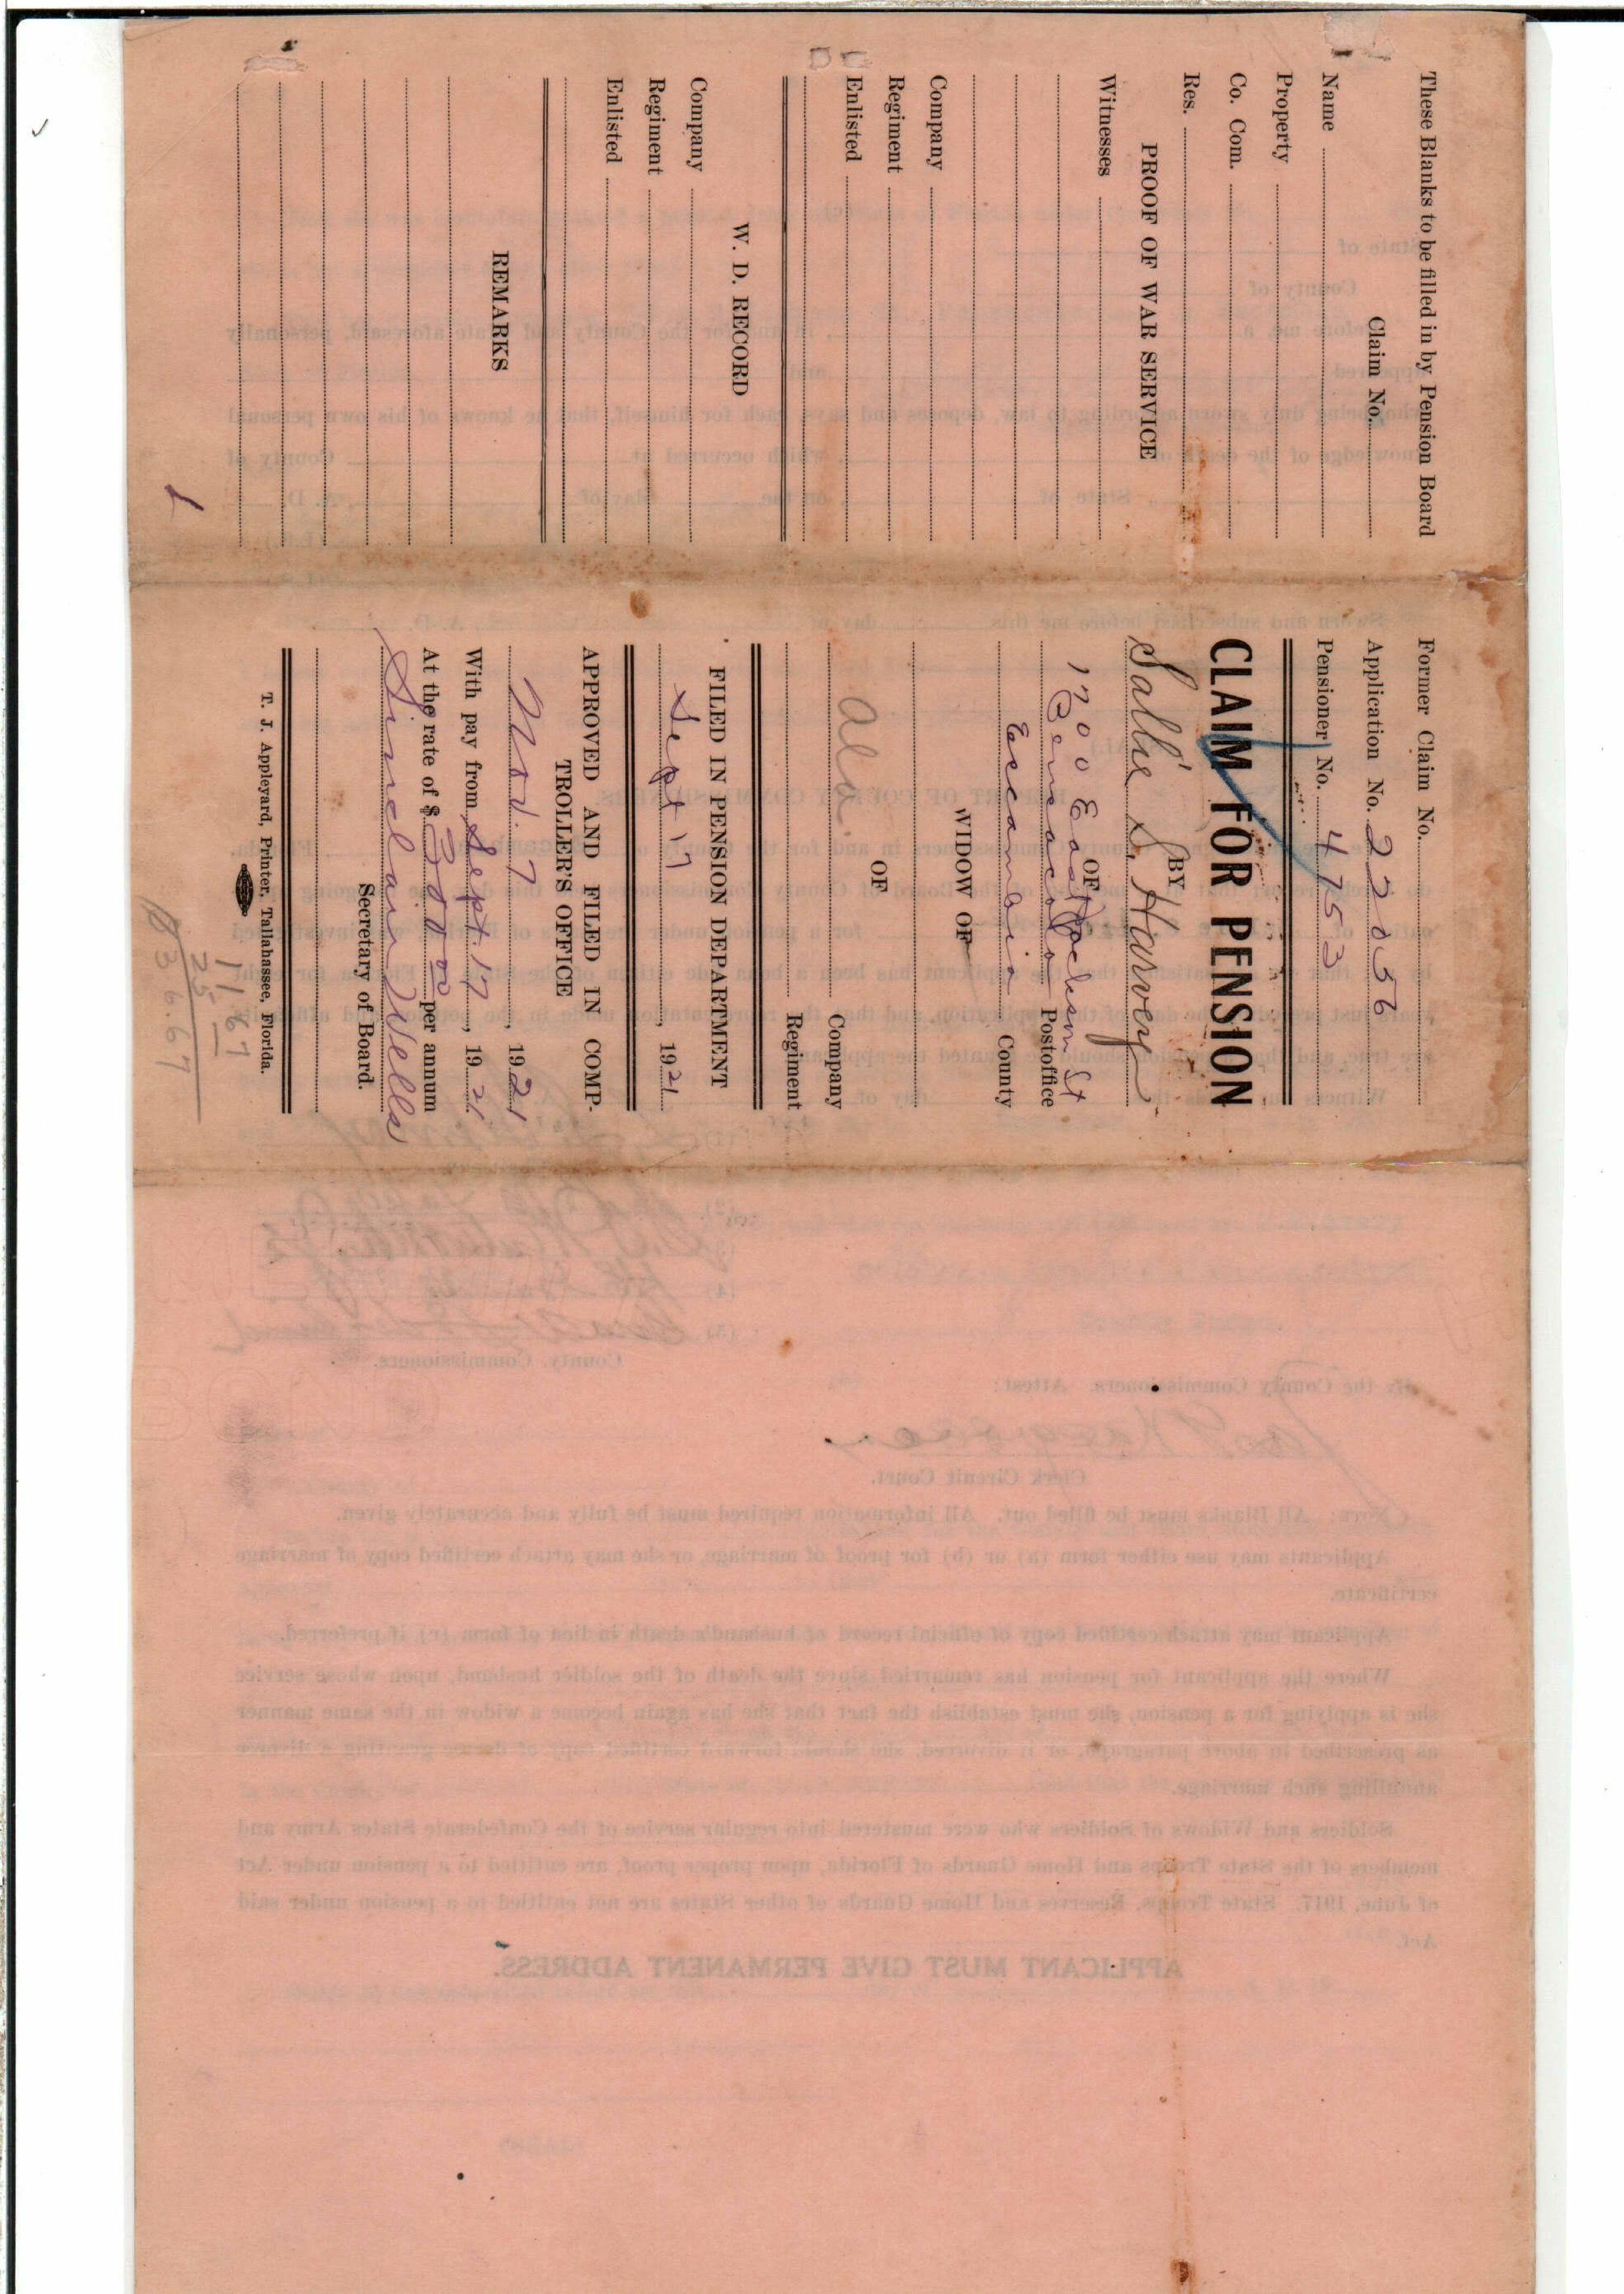 These Blanks to be filled in by Pension Board
Claim No.
Name
Property
Co. Com.
Res.
PROOF OF WAR SERVICE
Witnesses
Company
Regiment
Enlisted
W. D. RECORD
Company
Regiment
Enlisted
REMARKS
Former Claim No.
Application No. 22056
Pensioner No. 4753
CLAIM FOR PENSION
BY
Sallie S. Harvey
OF
1700 East Jackson St
Pensacola Postoffice
Escambia County
WIDOW OF
OF
Ala. Company
Regiment
FILED IN PENSION DEPARTMENT
Sept 17, 1921
APPROVED AND FILED IN COMP-
TROLLER'S OFFICE
Nov. 7, 1921
With pay from Sept. 17, 1921
At the rate of $ 300 00 per annum
Sinclair Wells
Secretary of Board.
T. J. Appleyard, Printer, Tallahassee, Florida.
11.67
25
36.67